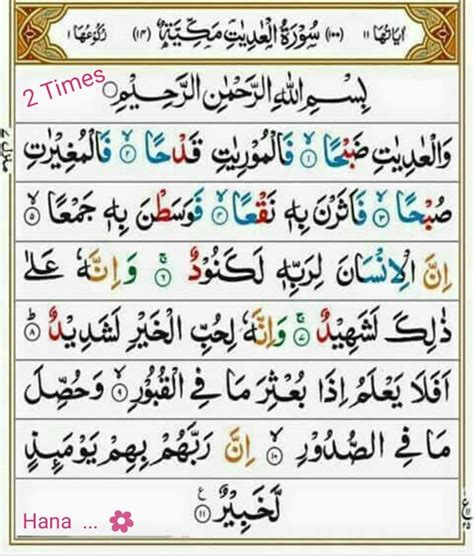 اٰيَاتُهَا ١١ (١٠٠) سُوْرَةُ الْعٰدِيٰتِ مَكِّيَّةٌ (١٤) رُكُوْعُهَا ١
2 Times
بِسْمِ اللّٰهِ الرَّحْمٰنِ الرَّحِيْمِ
وَالْعٰدِيٰتِ ضَبْحًا ١ فَالْمُوْرِيٰتِ قَدْحًا ٢ فَالْمُغِيْرٰتِ
صُبْحًا ٣ فَاَثَرْنَ بِهٖ نَقْعًا ٤ فَوَسَطْنَ بِهٖ جَمْعًا ٥
اِنَّ الْاِنْسَانَ لِرَبِّهٖ لَكَنُوْدٌ ٦ وَاِنَّهٗ عَلٰى
ذٰلِكَ لَشَهِيْدٌ ٧ وَاِنَّهٗ لِحُبِّ الْخَيْرِ لَشَدِيْدٌ ٨
اَفَلَا يَعْلَمُ اِذَا بُعْثِرَ مَا فِى الْقُبُوْرِ ٩ وَحُصِّلَ
مَا فِى الصُّدُوْرِ ١٠ اِنَّ رَبَّهُمْ بِهِمْ يَوْمَئِذٍ
لَّخَبِيْرٌ ١١
Hana ...